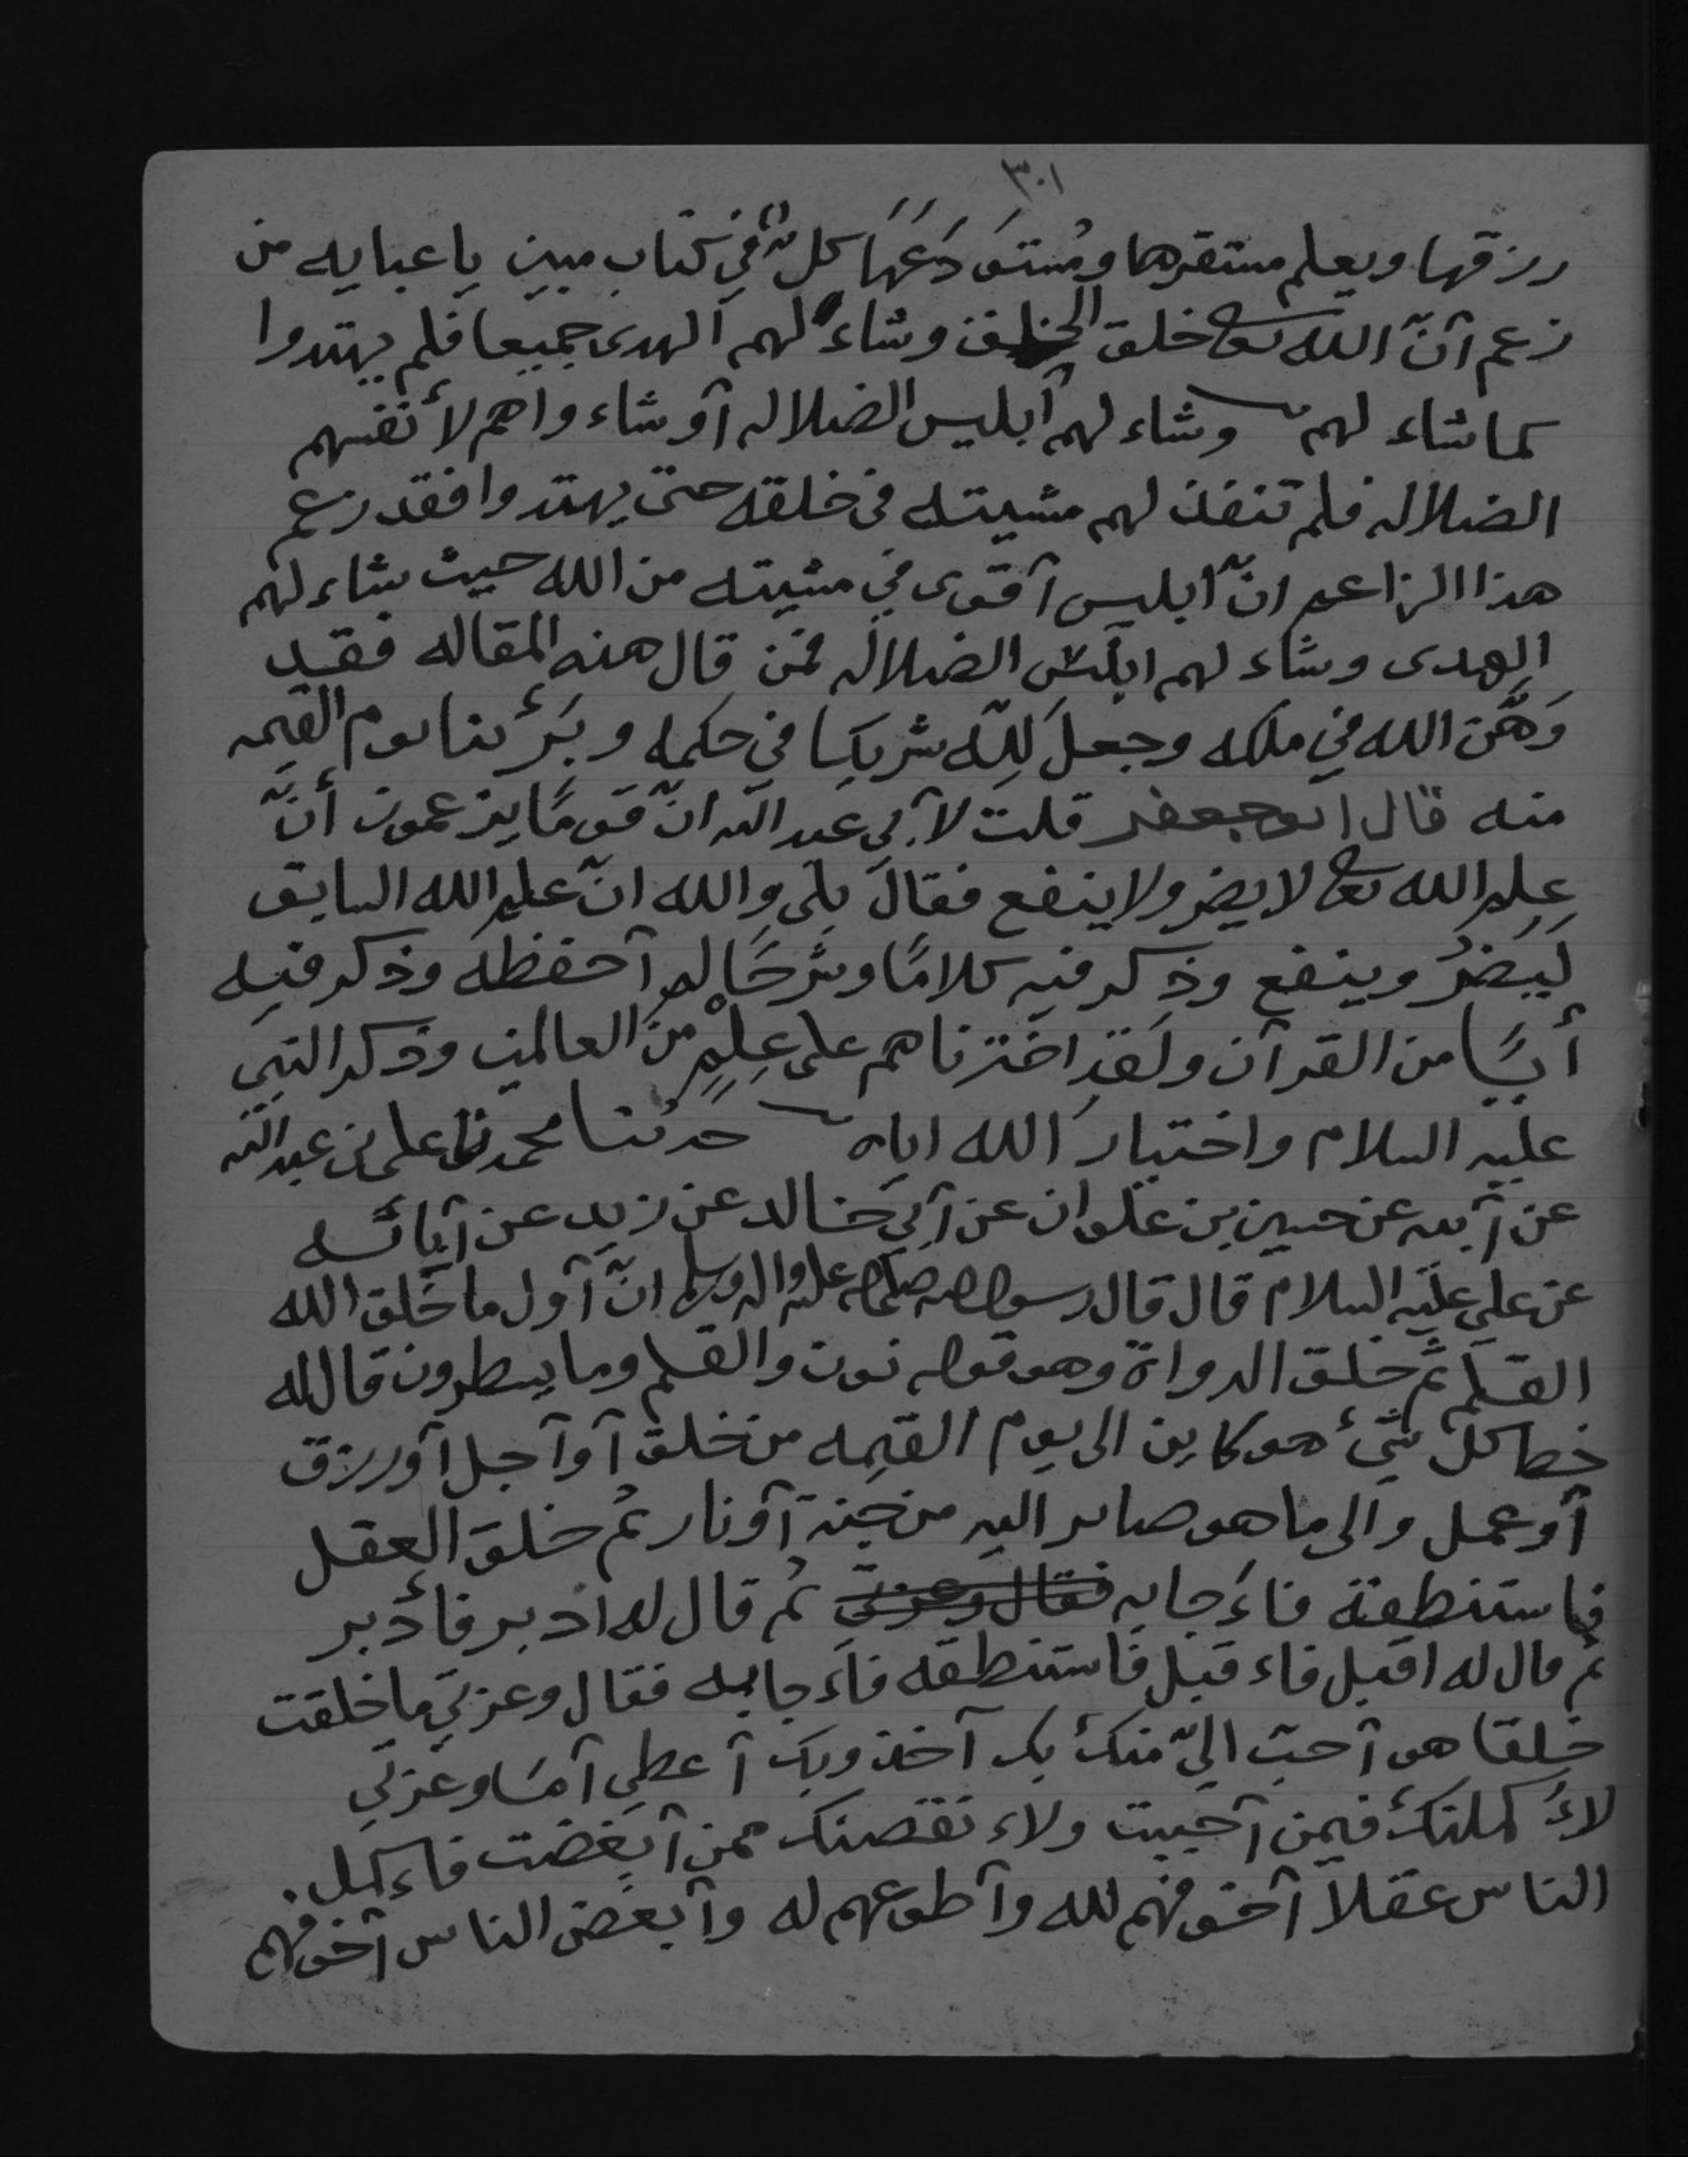 ٣٠١
رزقها ويعلم مستقرها ومُستَودَعَهَا كلٌّ في كتاب مبين يا عبايه من
زعم آنّ الله تعالى خلق الخلق وشاء لهم الهدى جميعا فلم يهتدوا
كما شاء لهم وشاء لهم آبليس الضلاله آو شاء واهم لأنفسهم
الضلاله فلم تنفذ لهم مشيته في خلقه حتى يهتدوا فقد زعم
هذا الزاعم انّ ابليس آقوى في مشيته من الله حيث شاء لهم
الهدى وشاء لهم ابليس الضلاله فمن قال هذه المقاله فقد
وَهَّن الله في ملكه وجعل لِلّه شريكا في حكمه وبَرئنا يوم القيمه
منه قال ابو جعفر قلت لآبي عبد الله انّ قومًا يزعمون أنّ
عِلم الله تعالى لا يضر ولا ينفع فقال بلى والله انّ علم الله السابق
لَيَضرُ وينفع وذكر فيه كلامًا وشرحًا لم آحفظه وذكر فيه
أيًا من القرآن ولقد اخترناهم على عِلمٍ من العالمين وذكر النبي
عليه السلام واختيار الله اياه حدثنا محمد نا علي بن عبد الله
عن آبيه عن حسين بن علوان عن آبي خالد عن زيد عن آبائه
عن علي عليه السلام قال قال رسول الله صلى الله عليه واله وسلم انّ آول ما خلق الله
القلم ثم خلق الدواة وهو قوله نون والقلم وما يسطرون قال له
خط كل شيء هو كاين الى يوم القيمه من خلق آو آجل آو رزق
آو عمل والى ما هو صاير اليه من جنة آو نار ثم خلق العقل
فاستنطقة فاءجابه فقال وعزتي ثم قال له ادبر فأدبر
ثم قال له اقبل فاءقبل فاستنطقه فاءجابه فقال وعزتي ما خلقت
خلقا هو آحبّ اليّ منك بك آخذ وبك آعطي آمَا وعزتي
لاءكملنك فيمن آحببت ولاءنقصنك ممن آبغضت فاءكمل
الناس عقلا آخوفهم لله وآطوعهم له وآبغض الناس آخوفهم